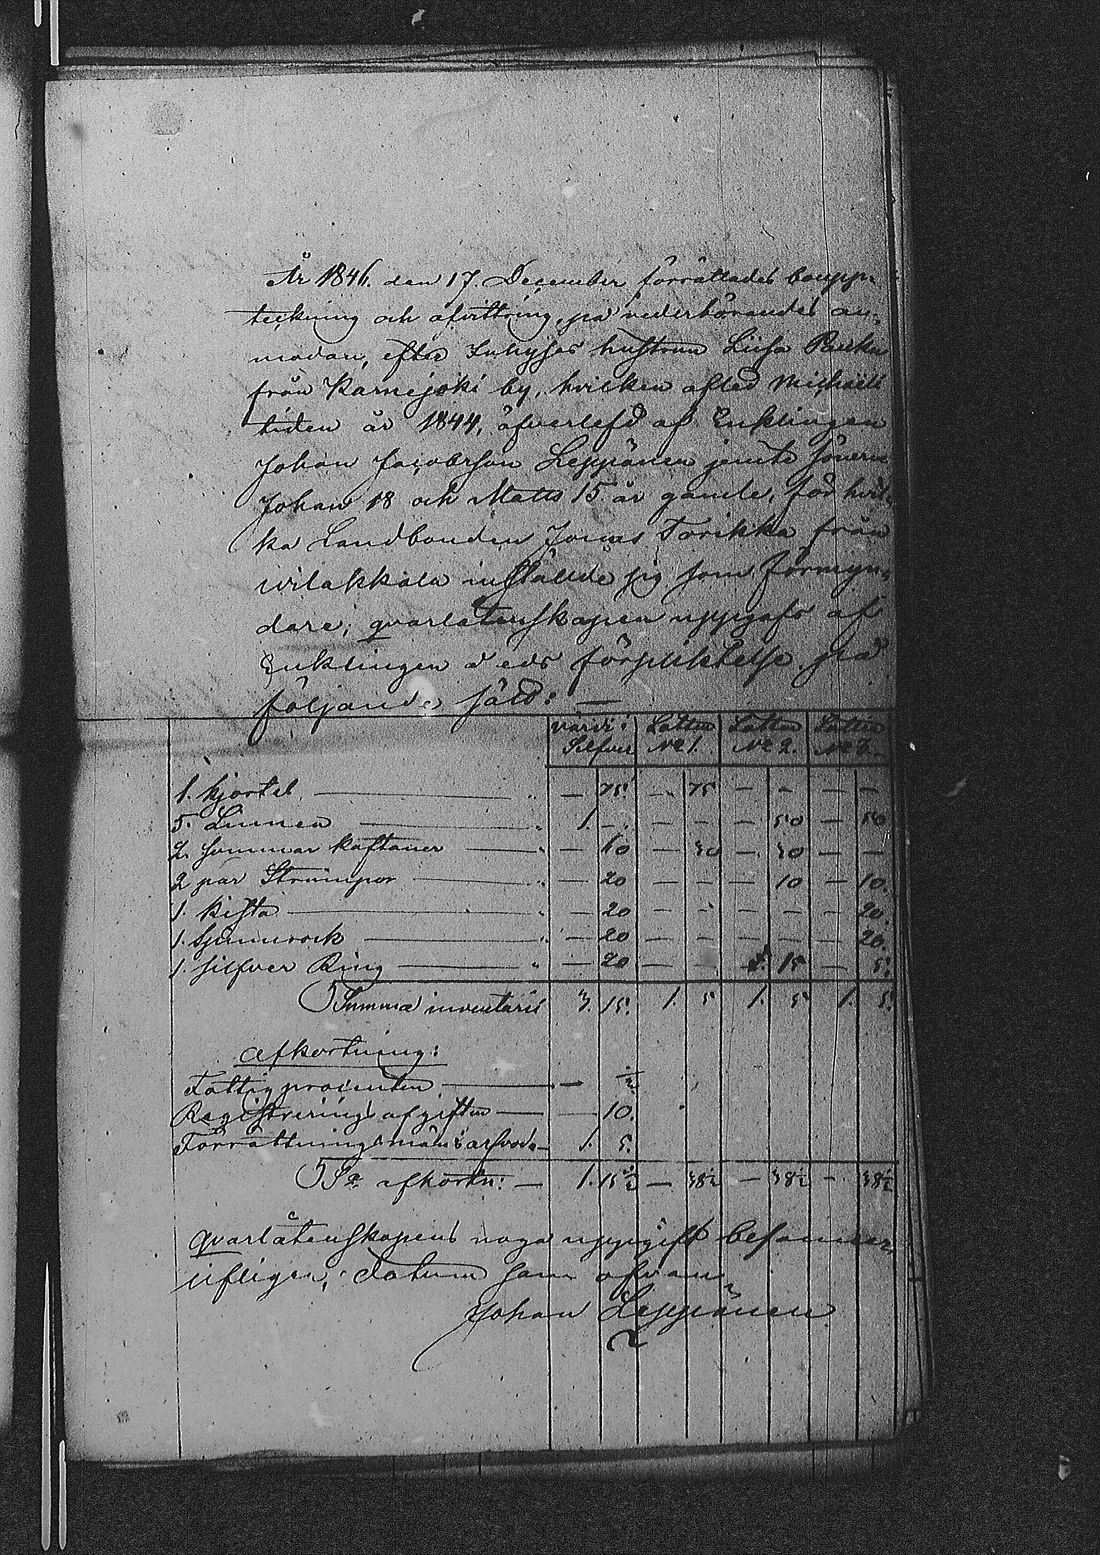 År 1846. den 17. December förrättades boupp-
teckning och afvittring, på vederbörandes an-
modan, efter Inhyses hustrun Liisa
från Karnejoki by, hvilken afled Michaëlis
tiden år 1844, öfverlefd af Enklingen
Johan Jacobsson Leppänen jemte sönerne
Johan 18 och Matts 15 år gamle, för hvil-
ka Landbonden Jonas Torikka från
Wilakkala inställde sig som Förmyn-
dare; qvarlåtenskapen uppgafs af
Enklingen å eds förpliktelse på
följande sätt: —
Värdi: Silfver Lotten No 1. Lotten No 2. Lotten No 3.
1. kjortel — 75. — 75 — — — —
5. Linnen 1. — — — — 50 — 50
2. sommar kaftaner — 60 — 30 — 30 — —
2 par Strumpor — 20 — — — 10 — 10.
1. kista — 20 — — — — 20.
1. Spinnrock — 20 — — — — — 20.
1. silfver Ring — 20 — — 15 — 5.
Summa inventarii 3. 15. 1. 5 1. 5 1. 5.
Afkortning:
Fattigprocenten — ½
Registrerings afgiften — 10.
Förrättningsmäns arfvode 1. 5.
Sa afkortn: — 1. 15½ — 38½ — 38½ — 38½
Qvarlåtenskapens noga uppgift
datum som ofvan
Johan Leppänen